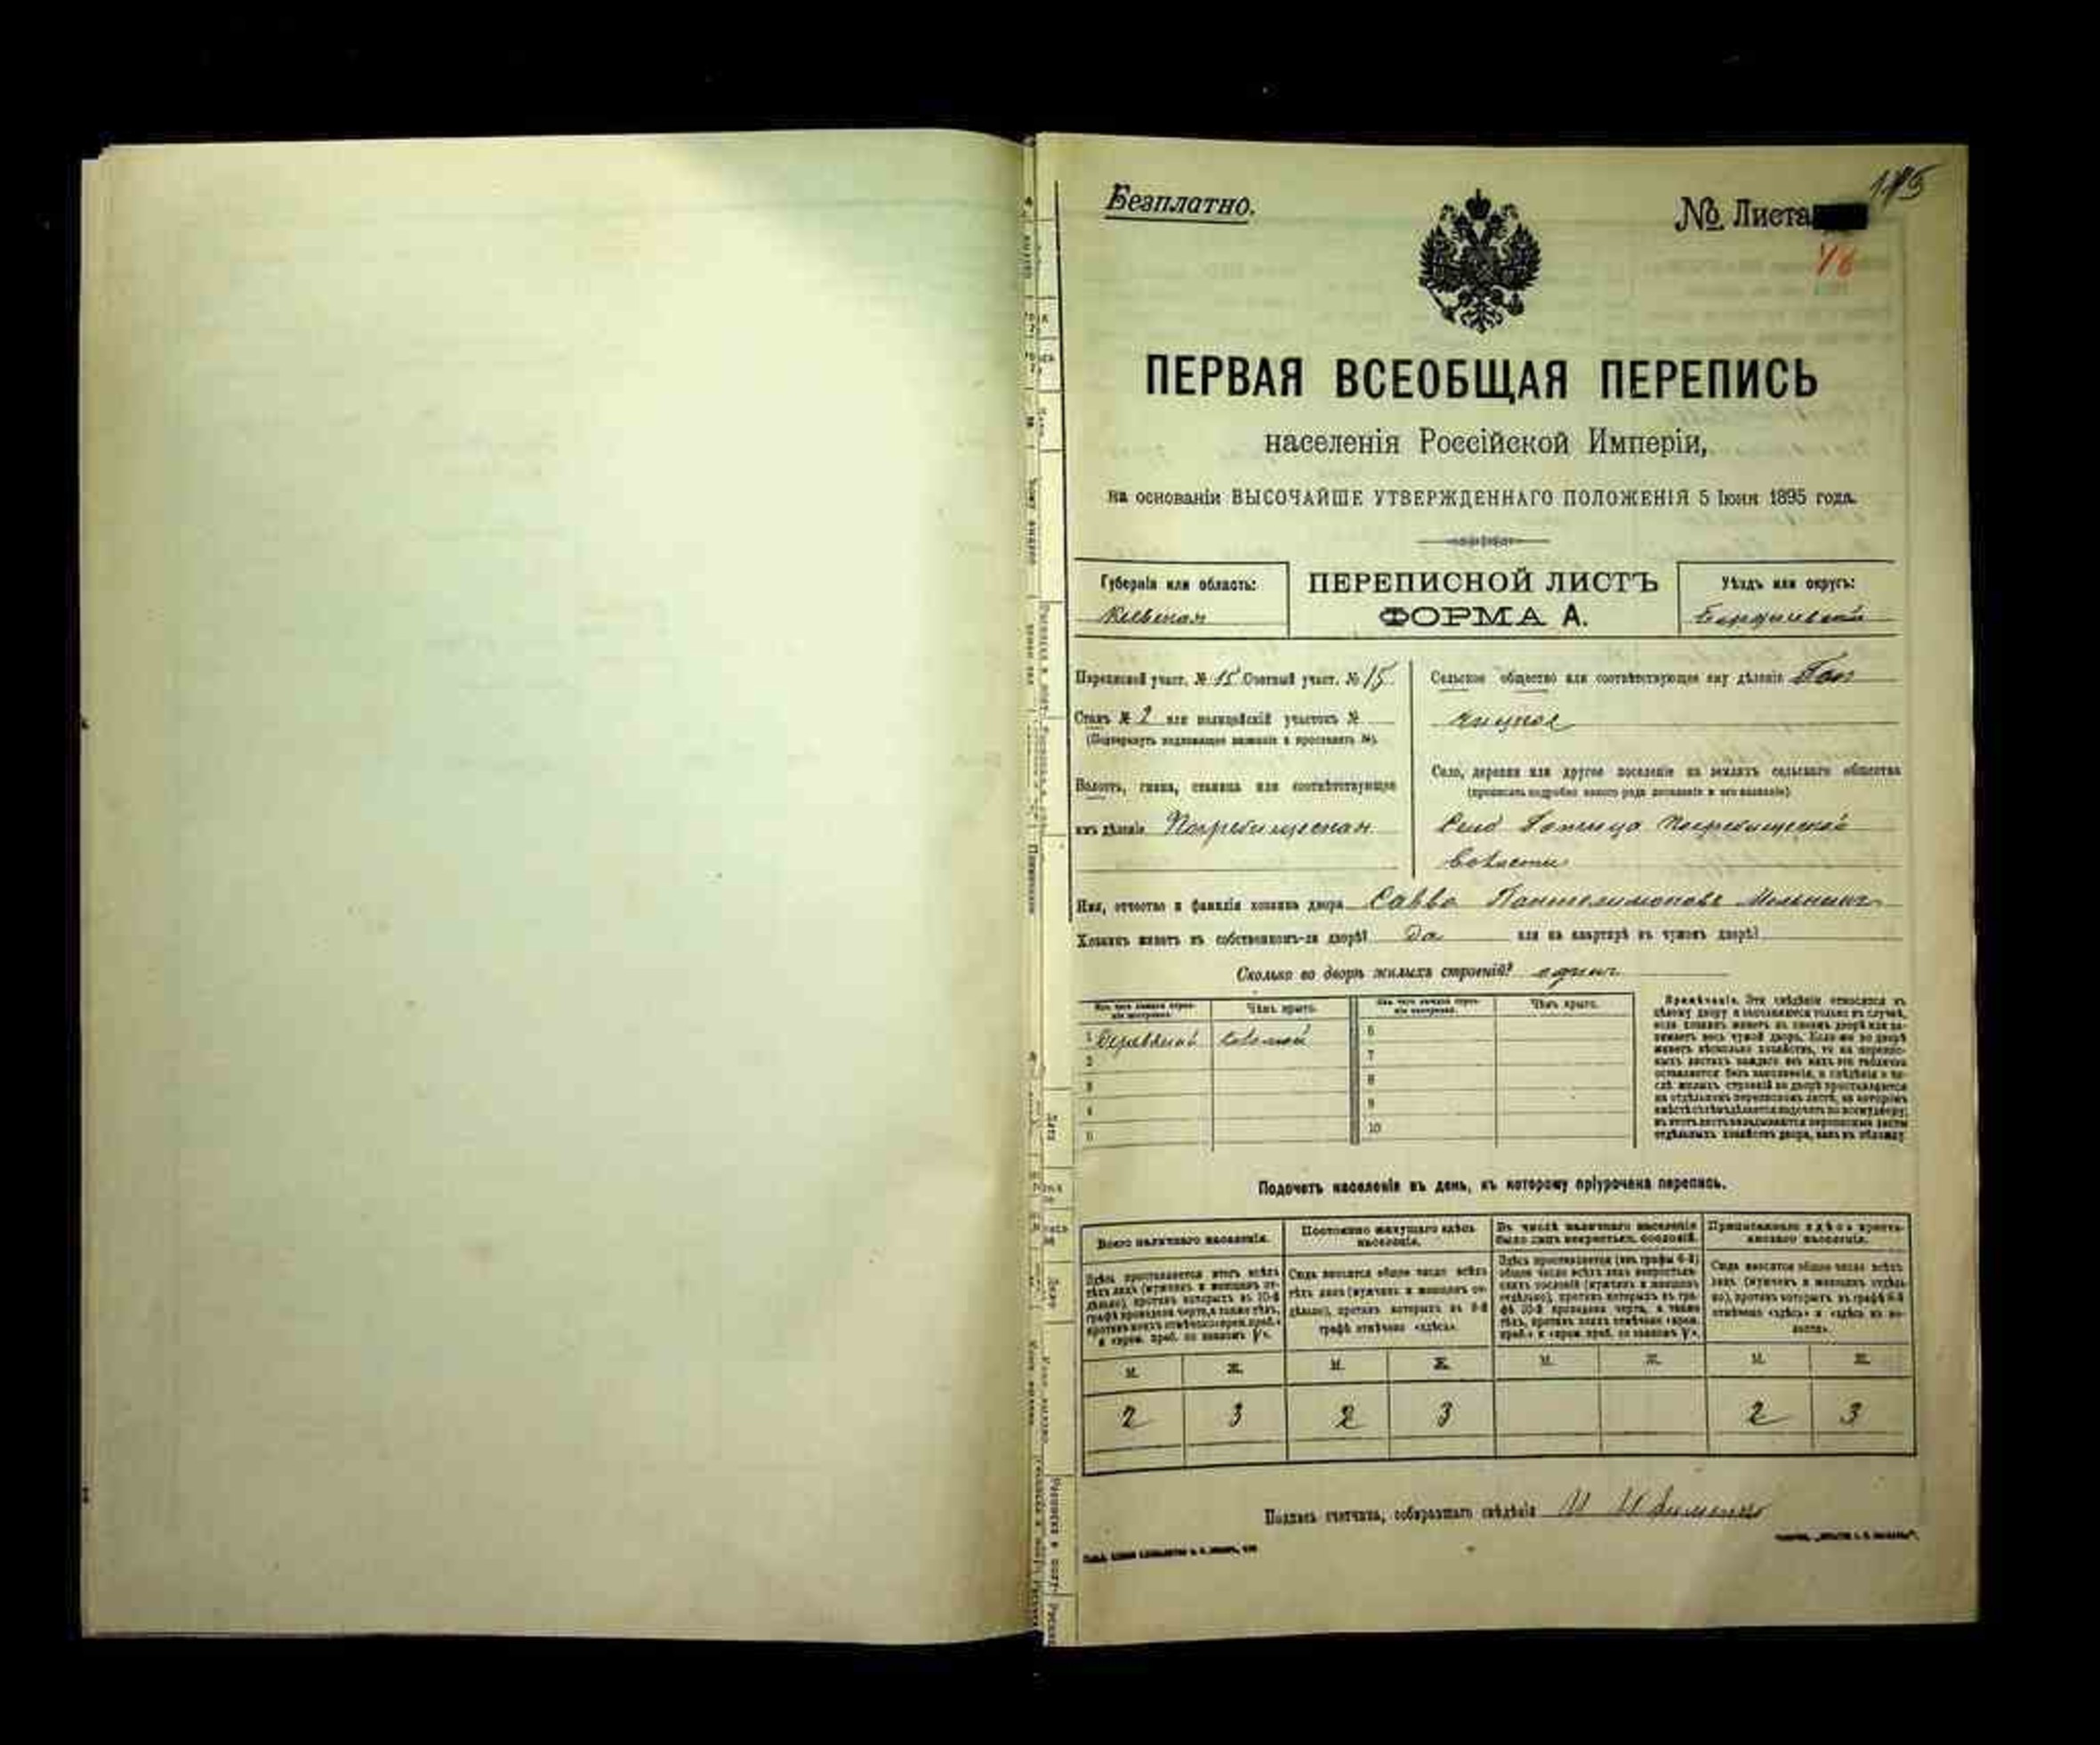 Безплатно.
№ Листа
175
ПЕРВАЯ ВСЕОБЩАЯ ПЕРЕПИСЬ
населенія Россійской Имперіи,
на основаніи ВЫСОЧАЙШЕ УТВЕРЖДЕННАГО ПОЛОЖЕНІЯ 5 Іюня 1895 года.
Губернія или область:
Кіевская
ПЕРЕПИСНОЙ ЛИСТЪ
ФОРМА А.
Уѣздъ или округъ:
Бердичевскій
Переписной участ. № 15 Счетный участ. № 15
Станъ № 2 или полицейскій участокъ №
(Подчеркнуть подлежащее названіе и проставить №).
Волость, гмина, станица или соотвѣтствующее
имъ дѣленіе Погребищенская
Сельское общество или соотвѣтствующее ему дѣленіе
Село, деревня или другое поселеніе на земляхъ сельскаго общества
(прописать подробно какого рода поселеніе и его названіе).
Село Погребищенской
волости
Имя, отчество и фамилія хозяина двора Савва Пантелимоновъ Мельникъ
Хозяинъ живетъ въ собственномъ-ли дворѣ? да или на квартирѣ въ чужомъ дворѣ?
Сколько во дворѣ жилыхъ строеній? одинъ
Чѣмъ крыто.
Чѣмъ крыто.
1 Деревяной соломой
2
3
4
5
6
7
8
9
10
Примѣчаніе. Эти свѣдѣнія относятся къ
цѣлому двору и заполняются только въ случаѣ,
если хозяинъ живетъ въ своемъ дворѣ или за-
нимаетъ весь чужой дворъ. Если-же во дворѣ
живетъ нѣсколько хозяйствъ, то на перепис-
ныхъ листахъ каждаго изъ нихъ эта табличка
оставляется безъ заполненія, а свѣдѣнія о чи-
слѣ жилыхъ строеній во дворѣ проставляются
на отдѣльномъ переписномъ листѣ, на которомъ
вмѣстѣ съ тѣмъ дѣлается подсчетъ по всему двору;
въ этотъ листъ вкладываются переписные листы
отдѣльныхъ хозяйствъ двора, какъ въ обложку.
Подсчетъ населенія въ день, къ которому пріурочена перепись.
Всего наличнаго населенія.
Здѣсь проставляется итогъ всѣхъ
тѣхъ лицъ (мужчинъ и женщинъ от-
дѣльно), противъ которыхъ въ 10-й
графѣ проведена черта, а также тѣхъ,
противъ коихъ отмѣчено «врем. преб.»
Постоянно живущаго здѣсь
населенія.
Сюда вносится общее число всѣхъ
тѣхъ лицъ (мужчинъ и женщинъ от-
дѣльно), противъ которыхъ въ 9-й
графѣ отмѣчено «здѣсь».
Въ числѣ наличнаго населенія
было лицъ некрестьян. сословій.
Здѣсь проставляется (изъ графы 6-й)
общее число всѣхъ лицъ некрестьян-
скихъ сословій (мужчинъ и женщинъ
отдѣльно), противъ которыхъ въ гра-
фѣ 10-й проведена черта, а также
тѣхъ, противъ коихъ отмѣчено «врем.
Приписаннаго здѣсь кресть-
янскаго населенія.
Сюда вносится общее число всѣхъ
лицъ (мужчинъ и женщинъ отдѣль-
но), противъ которыхъ въ графѣ 8-й
отмѣчено «здѣсь» и «здѣсь въ во-
лости».
М. Ж. М. Ж. М. Ж. М. Ж.
2 3 2 3 2 3
Подпись счетчика, собиравшаго свѣдѣнія